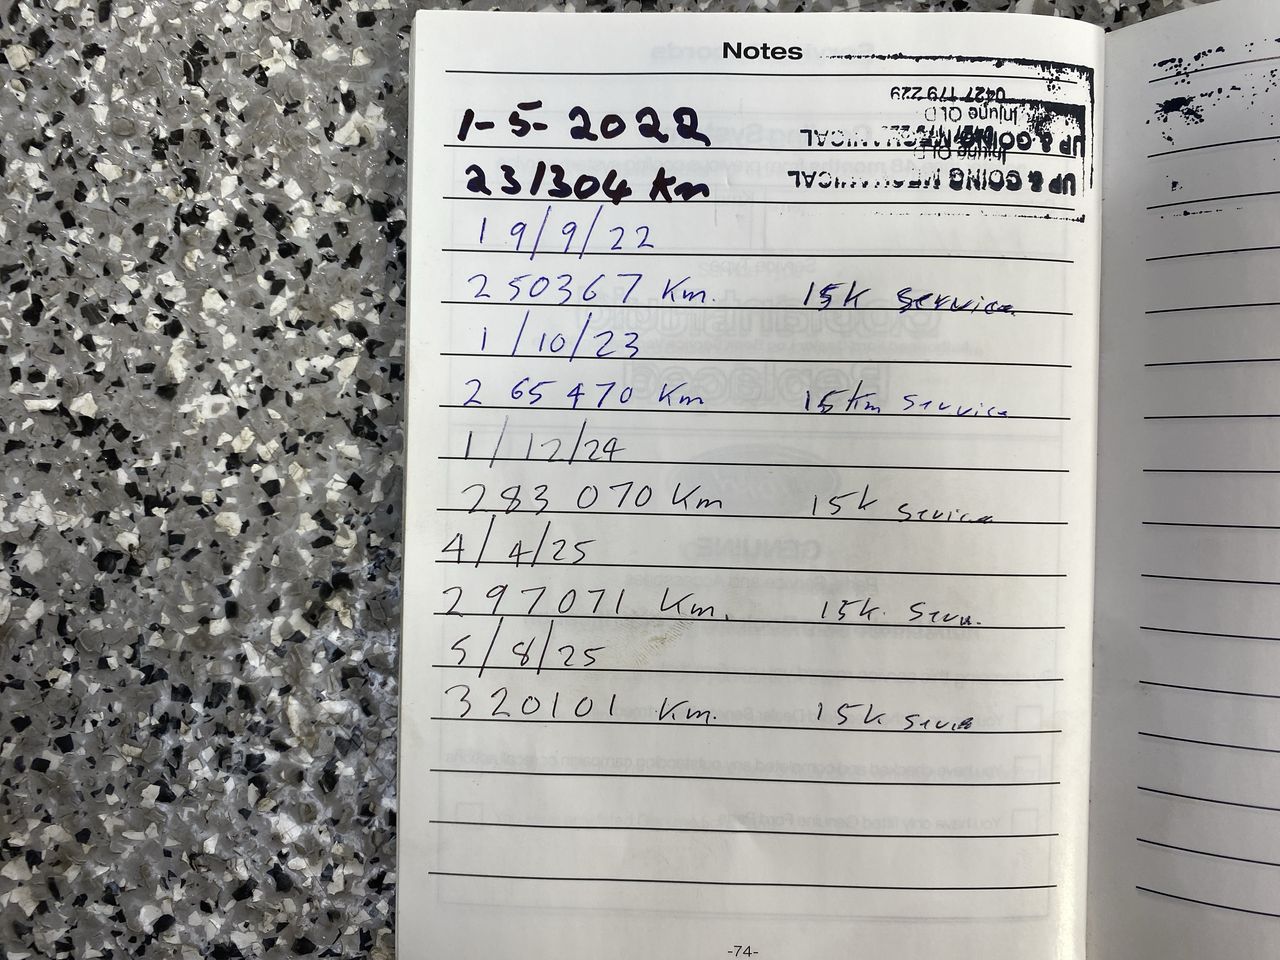 Notes
0427 179 229
Injune QLD
UP & GOING MECHANICAL
Injune QLD
UP & GOING MECHANICAL
1-5-2022
231304 Km
19/9/22
250367 Km. 15k Service
1/10/23
265470 Km 15km Service
1/12/24
283070 Km 15k Service
4/4/25
297071 Km. 15k. Serv.
5/8/25
320101 Km. 15k
-74-